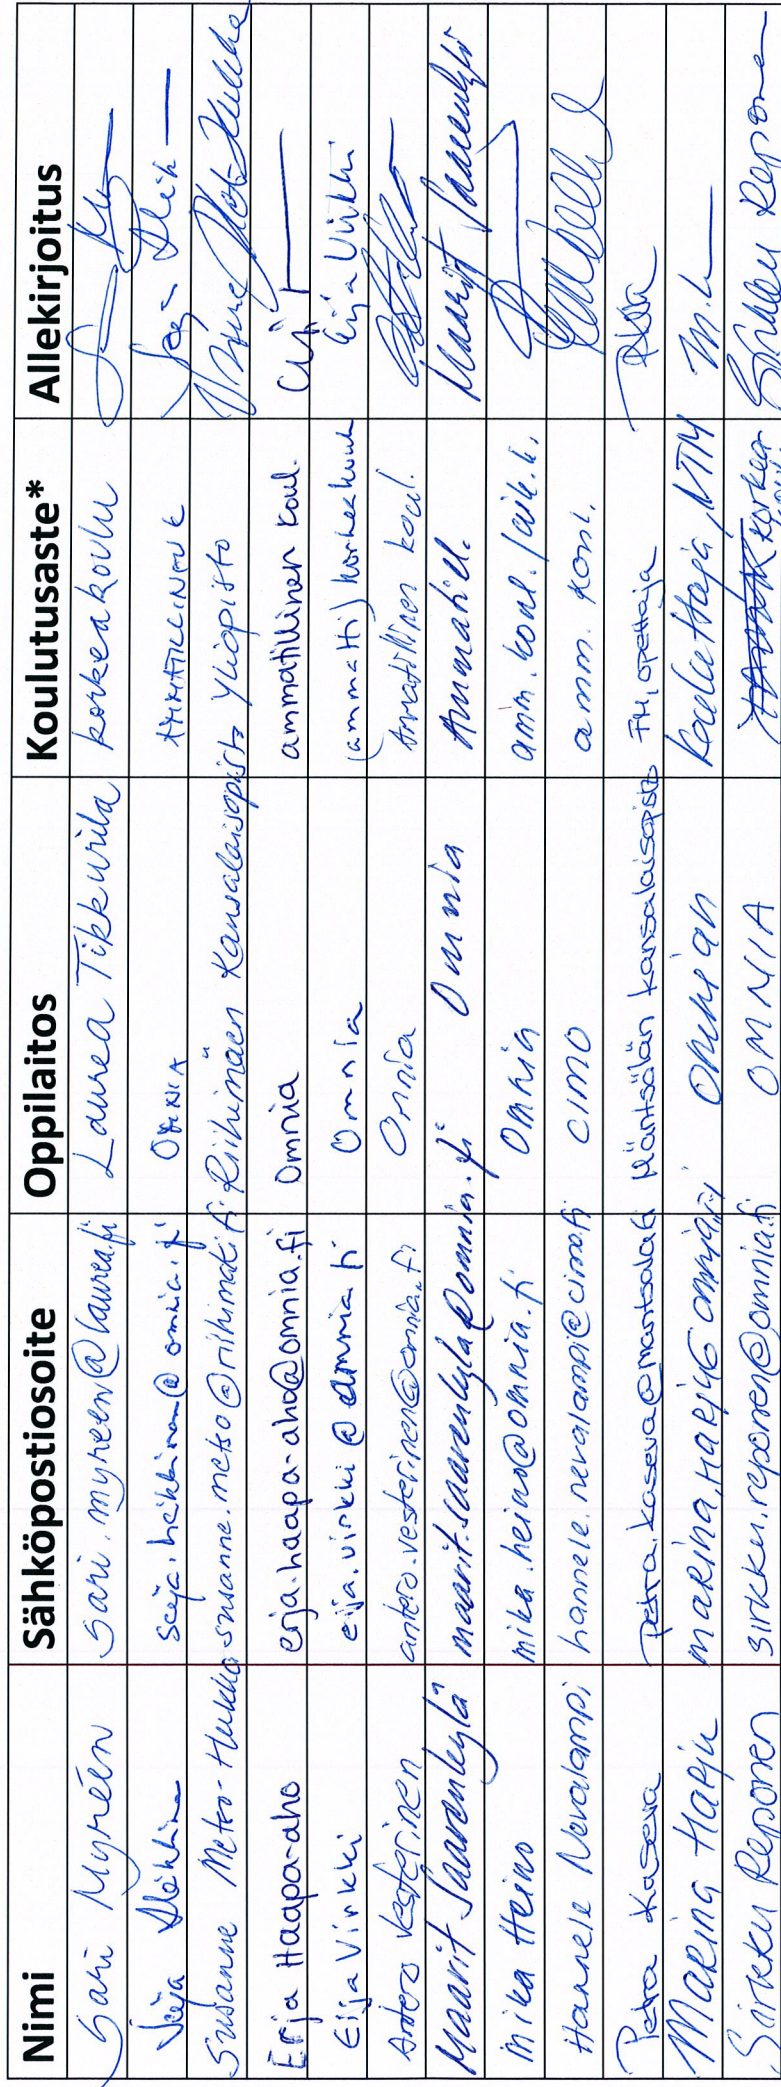 Nimi Sähköpostiosoite Oppilaitos Koulutusaste* Allekirjoitus
Sari Myréen sari.myreen@laurea.fi Laurea Tikkurila korkeakoulu
Seija seija.heikkinen@omnia.fi Omnia
Susanne Metso-Hukka susanne.metso@riihimaki.fi Riihimäen Kansalaisopisto Yliopisto
Erja Haapa-aho erja.haapa-aho@omnia.fi Omnia ammatillinen koul.
Eija Virkki eija.virkki@omnia.fi Omnia (ammatti) korkeakoulu Eija Virkki
Antero Vesterinen antero.vesterinen@omnia.fi Omnia Ammatillinen koul.
Maarit Saarenkylä maarit.saarenkyla@omnia.fi Omnia Ammatill. Maarit Saarenkylä
Mika Heino mika.heino@omnia.fi Omnia amm. koul.
Hannele Nevalampi hannele.nevalampi@cimo.fi CIMO amm. koul.
Petra Kaseva petra.kaseva@mantsala.fi Mäntsälän kansalaisopisto FM, opettaja
Marina Harju Omnian kouluttaja, NTM
Sirkku Reponen sirkku.reponen@omnia.fi OMNIA korkea Sirkku Reponen